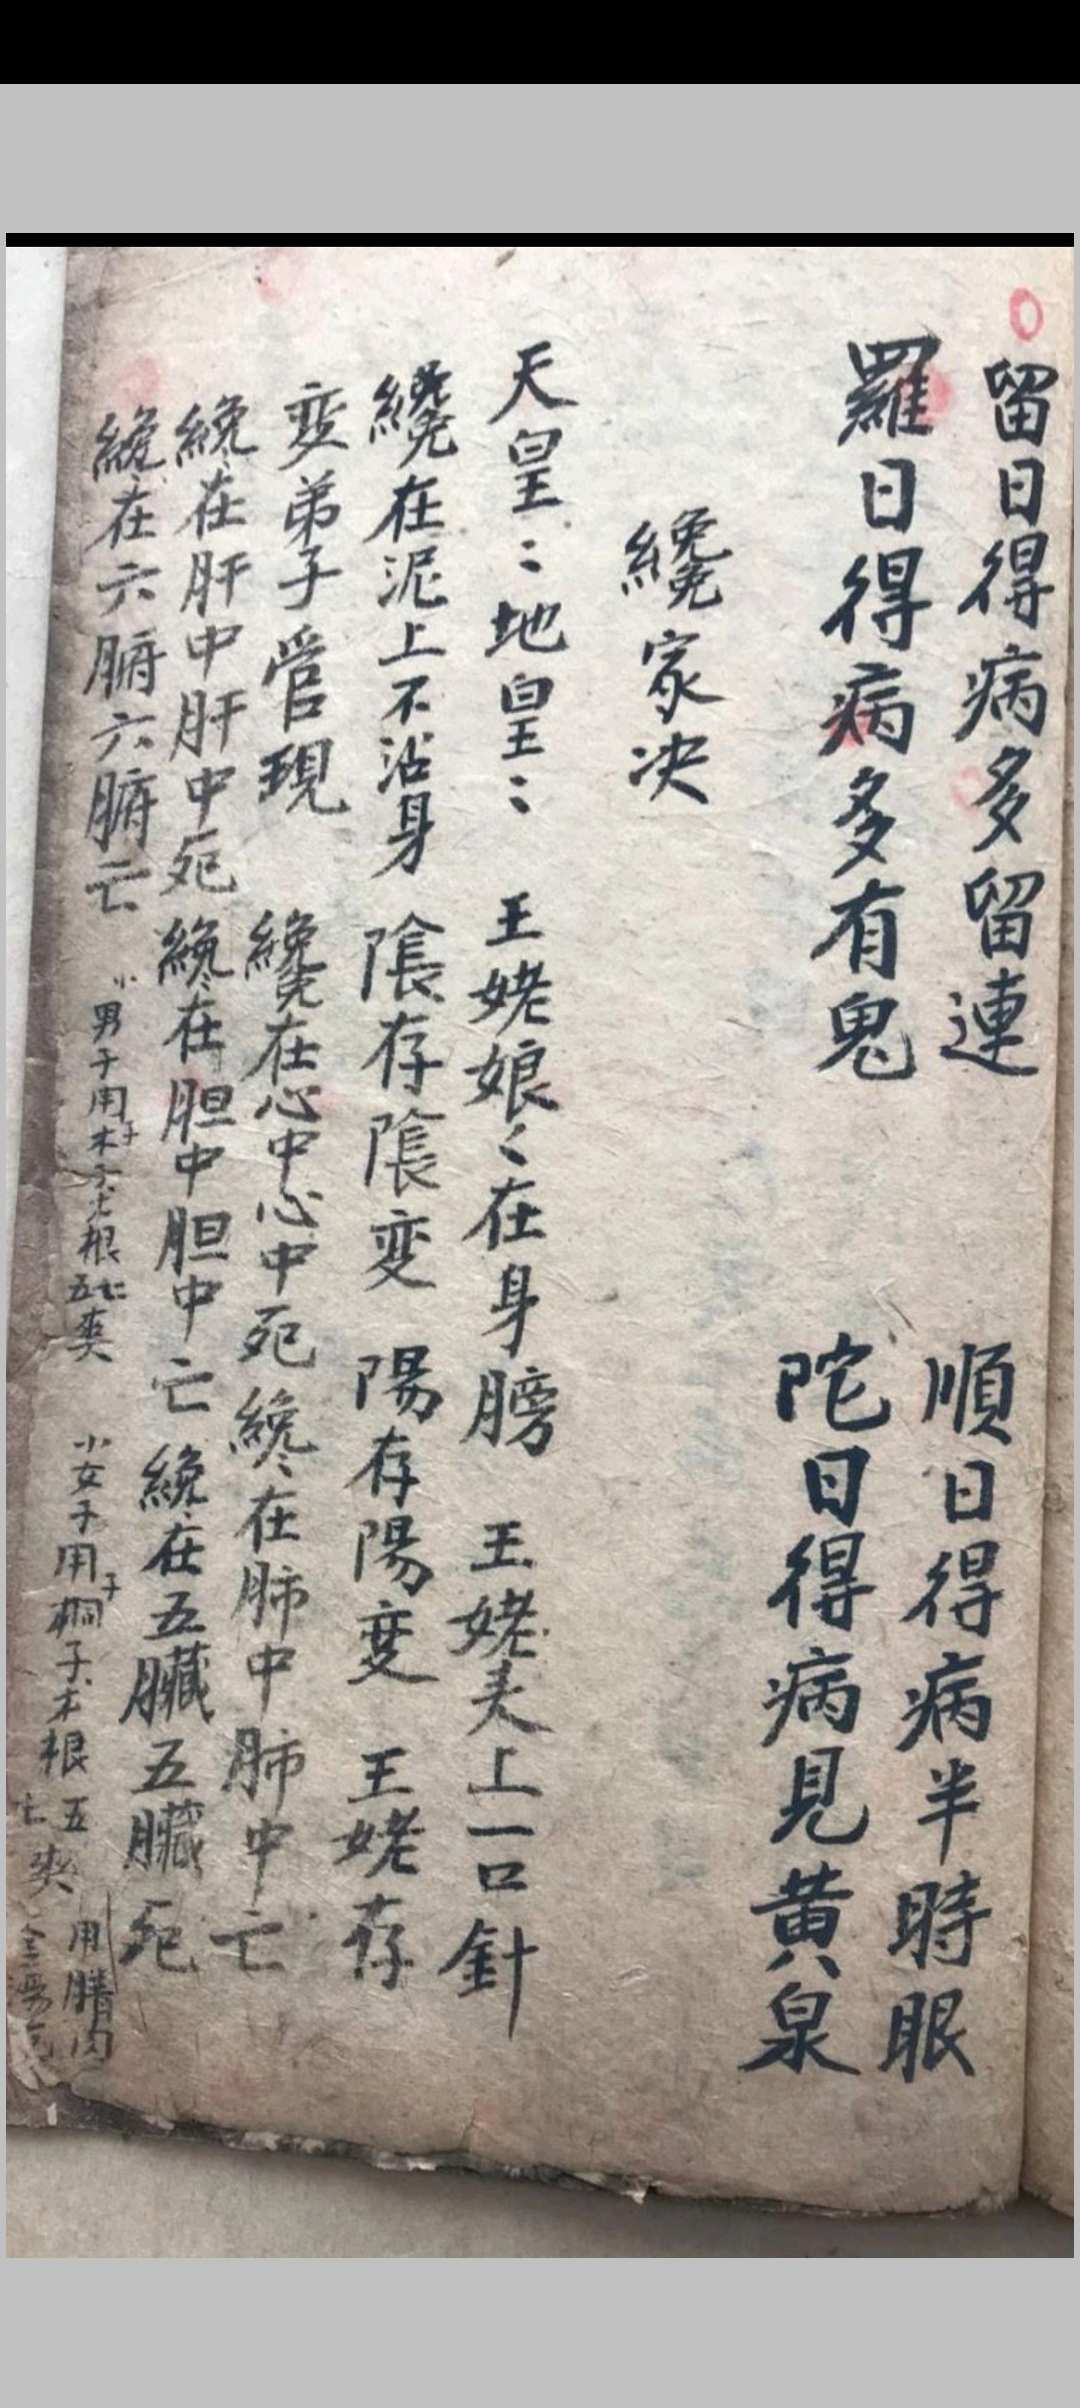 留日得病多留連　順日得病半時眼
羅日得病多有鬼　陀日得病見黄泉
纔家决
天皇〻地皇〻　王姥娘〻在身膀　王姥夫上一口針
纔在泥上不沾身　陰存陰变　陽存陽变　王姥存
变弟子管現　纔在心中心中死　纔在肺中肺中亡
纔在肝中肝中死　纔在胆中胆中亡　纔在五臟五臟死
纔在六腑六腑亡　小男子用木子　根五七　小女子用桐子木根五七　用